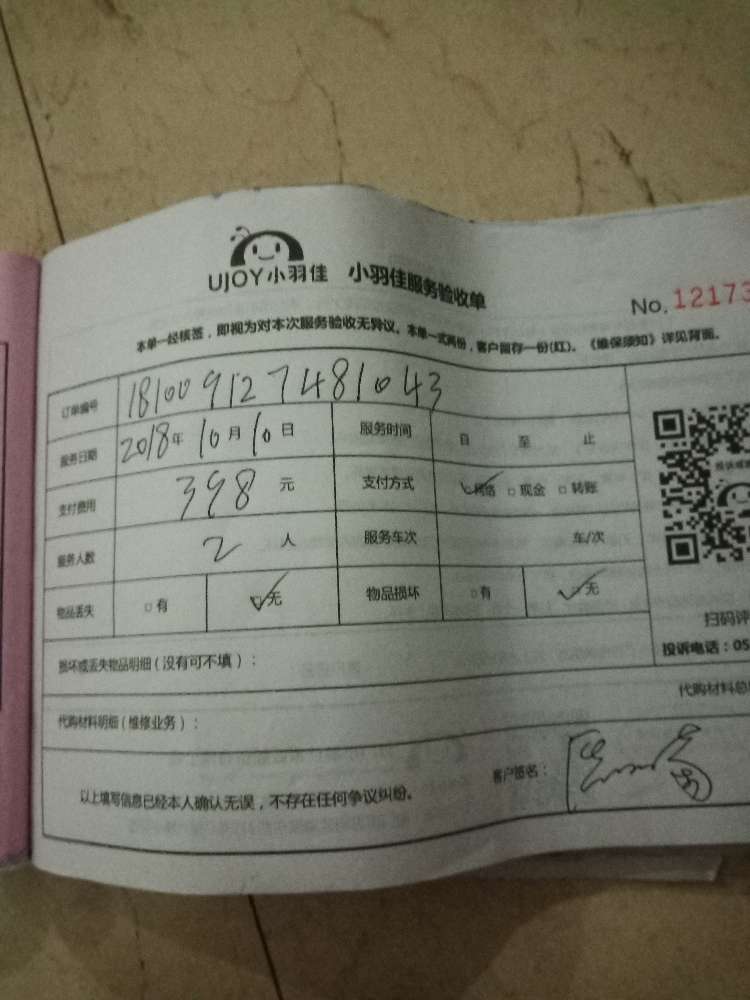 UJOY小羽佳 小羽佳服务验收单
No. 12173
本单一经核签，即视为对本次服务验收无异议。本单一式两份，客户留存一份(红)。《维保须知》详见背面。
订单编号 181009127481043
服务日期 2018年10月10日 服务时间 自 至 止
支付费用 398元 支付方式 ☑网络 □现金 □转账
服务人数 2人 服务车次 车/次
物品丢失 □有 ☑无 物品损坏 □有 ☑无
扫码评
投诉电话：05
损坏或丢失物品明细（没有可不填）：
代购材料明细（维修业务）： 代购材料总
以上填写信息已经本人确认无误，不存在任何争议纠纷。 客户签名：